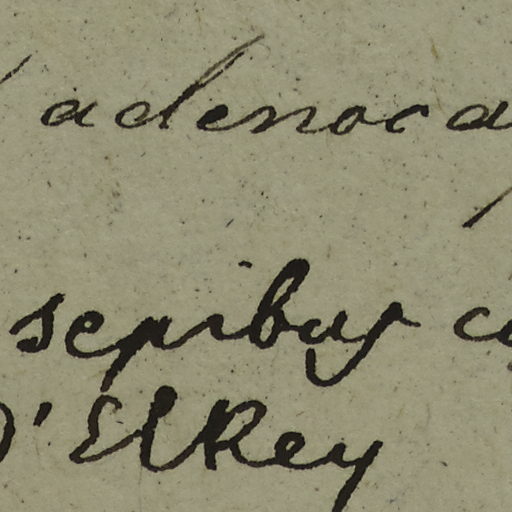 adenoca
sepibus c
D'Elrey